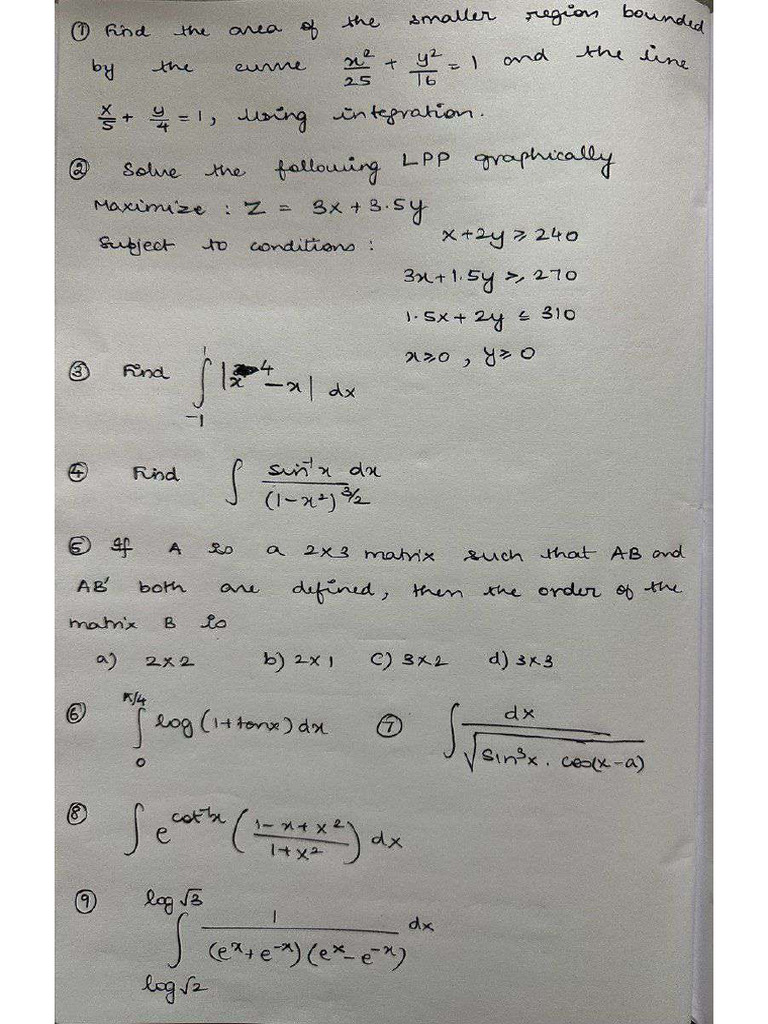 ① Find the area of the smaller region bounded
by the curve x²/25 + y²/16 = 1 and the line
x/5 + y/4 = 1, using integration.
② Solve the following LPP graphically
Maximize : Z = 3x + 3.5y
Subject to conditions : x + 2y ≥ 240
3x + 1.5y ≥ 270
1.5x + 2y ≤ 310
x ≥ 0 , y ≥ 0
③ Find ∫₋₁¹ |x⁴ - x| dx
④ Find ∫ sin⁻¹x dx / (1 - x²)^(3/2)
⑤ If A is a 2×3 matrix such that AB and
AB' both are defined, then the order of the
matrix B is
a) 2×2 b) 2×1 c) 3×2 d) 3×3
⑥ ∫₀^(π/4) log (1 + tanx) dx ⑦ ∫ dx / √(sin³x . cos(x-a))
⑧ ∫ e^(cot⁻¹x) ((1 - x + x²) / (1 + x²)) dx
⑨ ∫_(log √2)^(log √3) 1 / ((eˣ + e⁻ˣ) (eˣ - e⁻ˣ)) dx